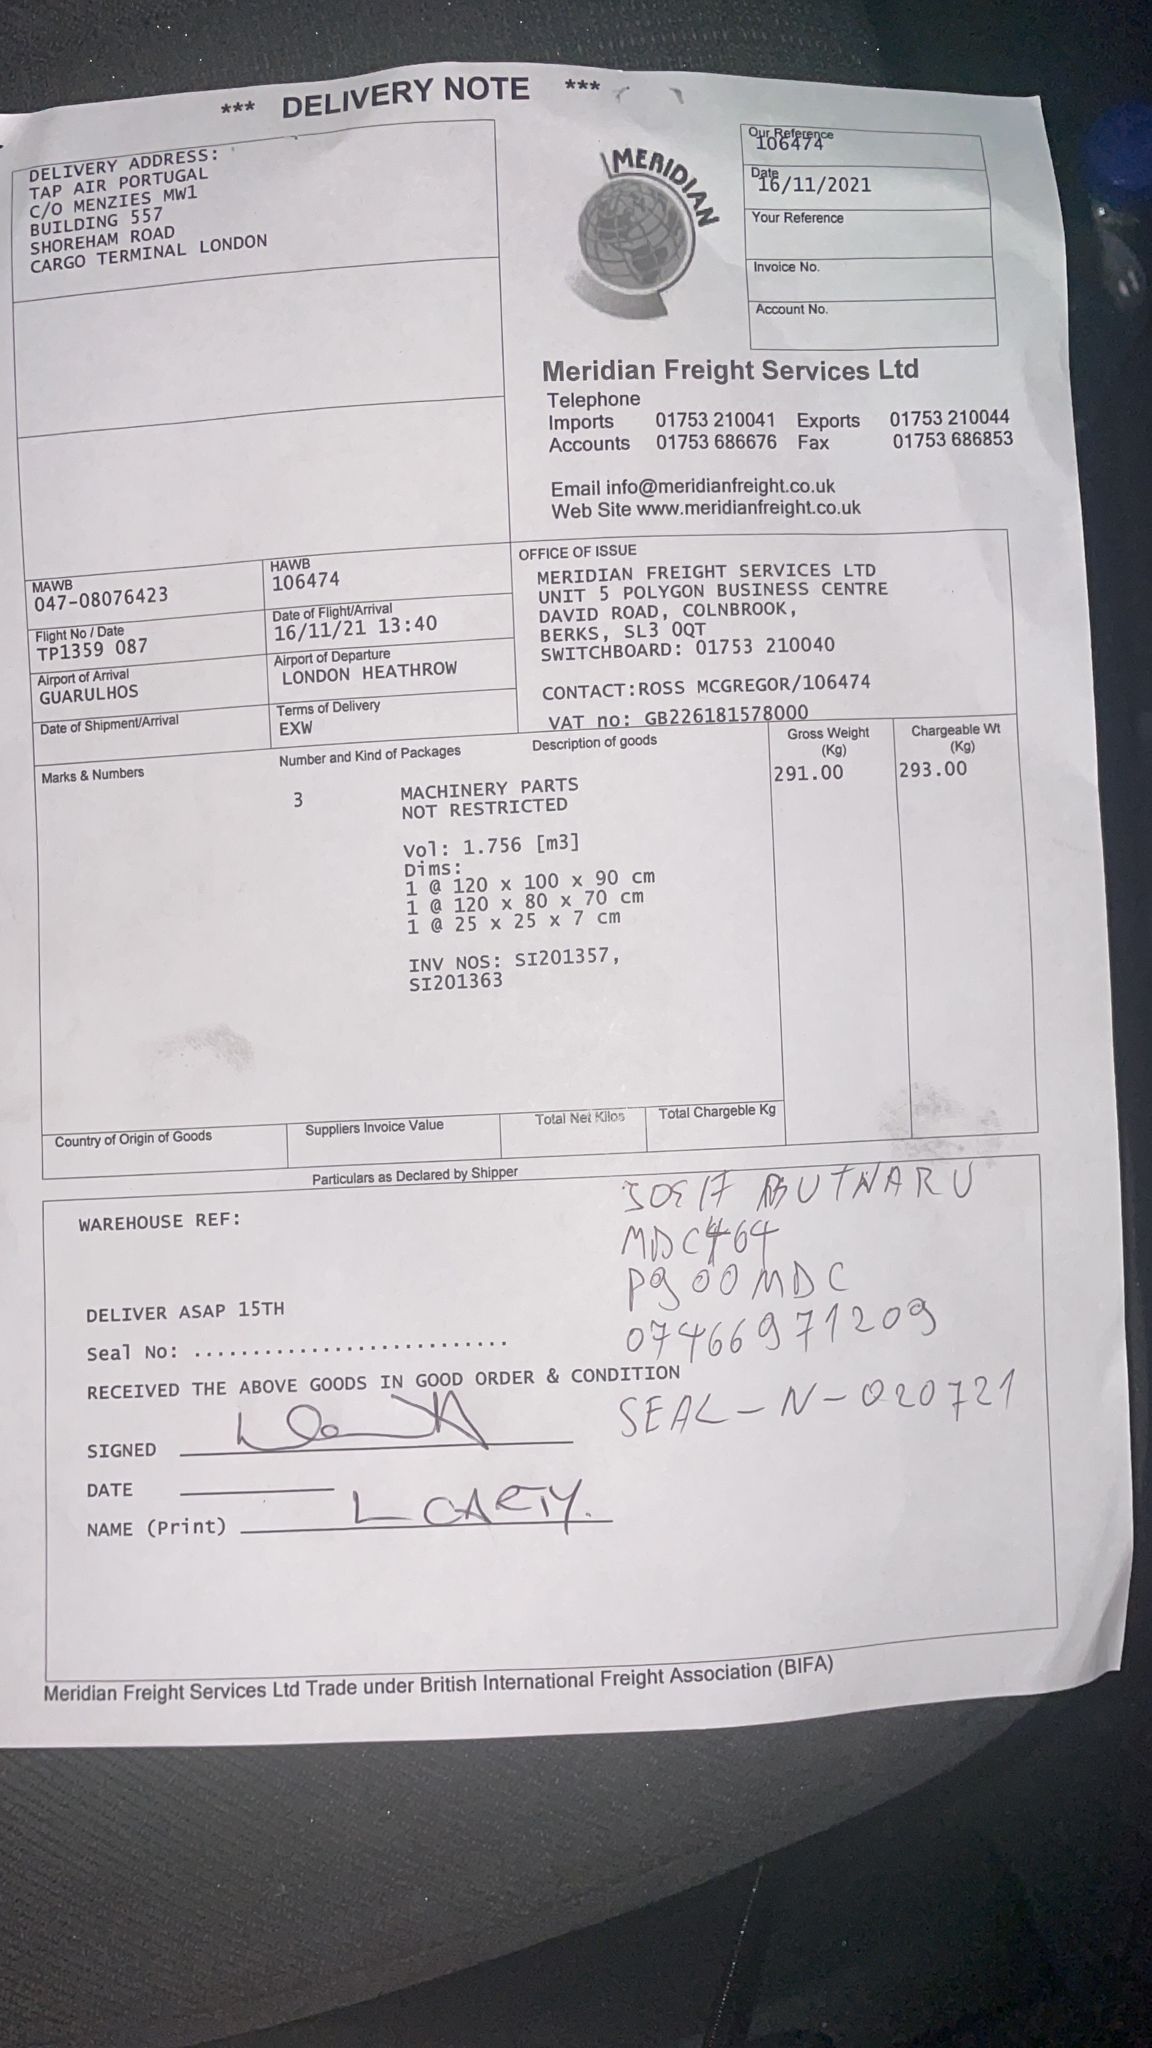 *** DELIVERY NOTE ***
DELIVERY ADDRESS:
TAP AIR PORTUGAL
C/O MENZIES MW1
BUILDING 557
SHOREHAM ROAD
CARGO TERMINAL LONDON
MERIDIAN
Our Reference
106474
Date
16/11/2021
Your Reference
Invoice No.
Account No.
Meridian Freight Services Ltd
Telephone
Imports 01753 210041 Exports 01753 210044
Accounts 01753 686676 Fax 01753 686853
Email info@meridianfreight.co.uk
Web Site www.meridianfreight.co.uk
MAWB
047-08076423
HAWB
106474
Flight No / Date
TP1359 087
Date of Flight/Arrival
16/11/21 13:40
Airport of Arrival
GUARULHOS
Airport of Departure
LONDON HEATHROW
Date of Shipment/Arrival
Terms of Delivery
EXW
OFFICE OF ISSUE
MERIDIAN FREIGHT SERVICES LTD
UNIT 5 POLYGON BUSINESS CENTRE
DAVID ROAD, COLNBROOK,
BERKS, SL3 0QT
SWITCHBOARD: 01753 210040
CONTACT:ROSS MCGREGOR/106474
VAT no: GB226181578000
Marks & Numbers
Number and Kind of Packages
Description of goods
Gross Weight
(Kg)
Chargeable Wt
(Kg)
3
MACHINERY PARTS
NOT RESTRICTED
291.00
293.00
Vol: 1.756 [m3]
Dims:
1 @ 120 x 100 x 90 cm
1 @ 120 x 80 x 70 cm
1 @ 25 x 25 x 7 cm
INV NOS: SI201357,
SI201363
Country of Origin of Goods
Suppliers Invoice Value
Total Net Kilos
Total Chargeble Kg
Particulars as Declared by Shipper
WAREHOUSE REF:
BUTNARU
MDC464
PG00MDC
07466971209
DELIVER ASAP 15TH
Seal No: ...........................
RECEIVED THE ABOVE GOODS IN GOOD ORDER & CONDITION
SEAL-N-020721
SIGNED
DATE
NAME (Print) L CARTY.
Meridian Freight Services Ltd Trade under British International Freight Association (BIFA)